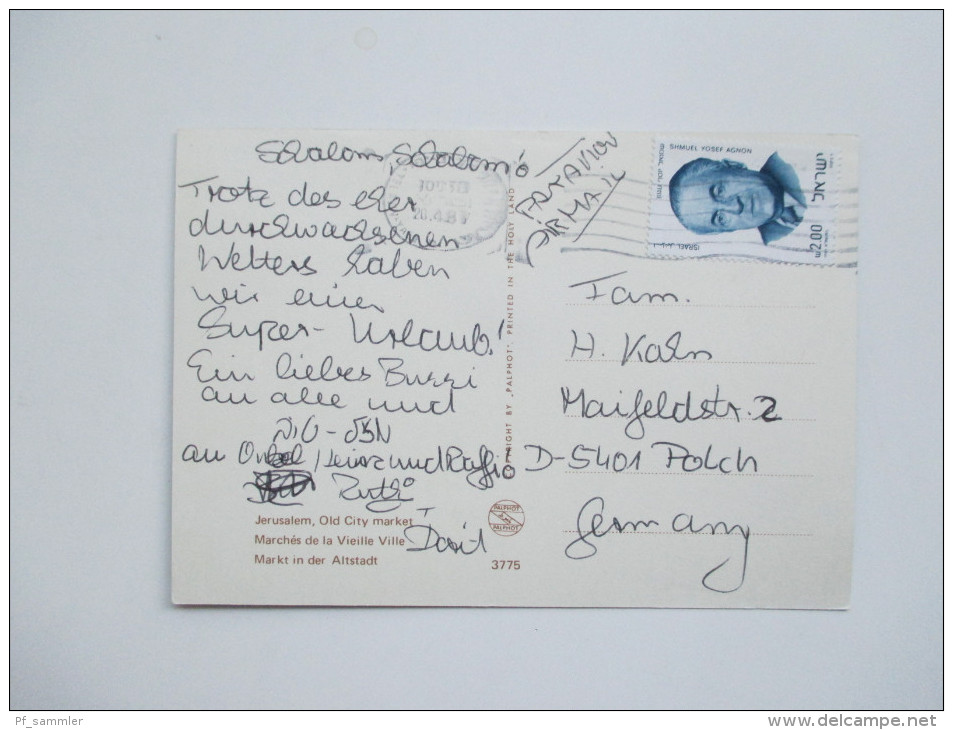 Schalom, Schalom!
Trotz des eher
durchwachsenen
Wetters haben
wir einen
Super-Urlaub!
Ein liebes Bussi
an alle und
an Onkel Heinz und Raffi
Ruthi
+
Dorit
Jerusalem, Old City market
Marchés de la Vieille Ville
Markt in der Altstadt
3775
COPYRIGHT BY "PALPHOT" PRINTED IN THE HOLY LAND
PALPHOT
PALPHOT
PAR AVION
AIRMAIL
20.4.8
SHMUEL YOSEF AGNON
ISRAEL
2.00
Fam.
H. Kahn
Maifeldstr. 2
D-5401 Polch
Germany
Pf_sammler
www.delcampe.net